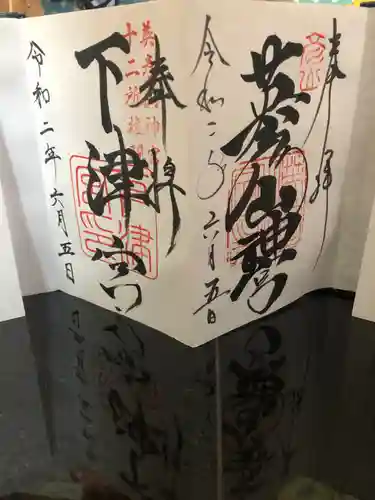 奉拝
英彦山神宮
令和二年六月五日
奉拝
英彦山神宮
十二所権現
下津宮
令和二年六月五日